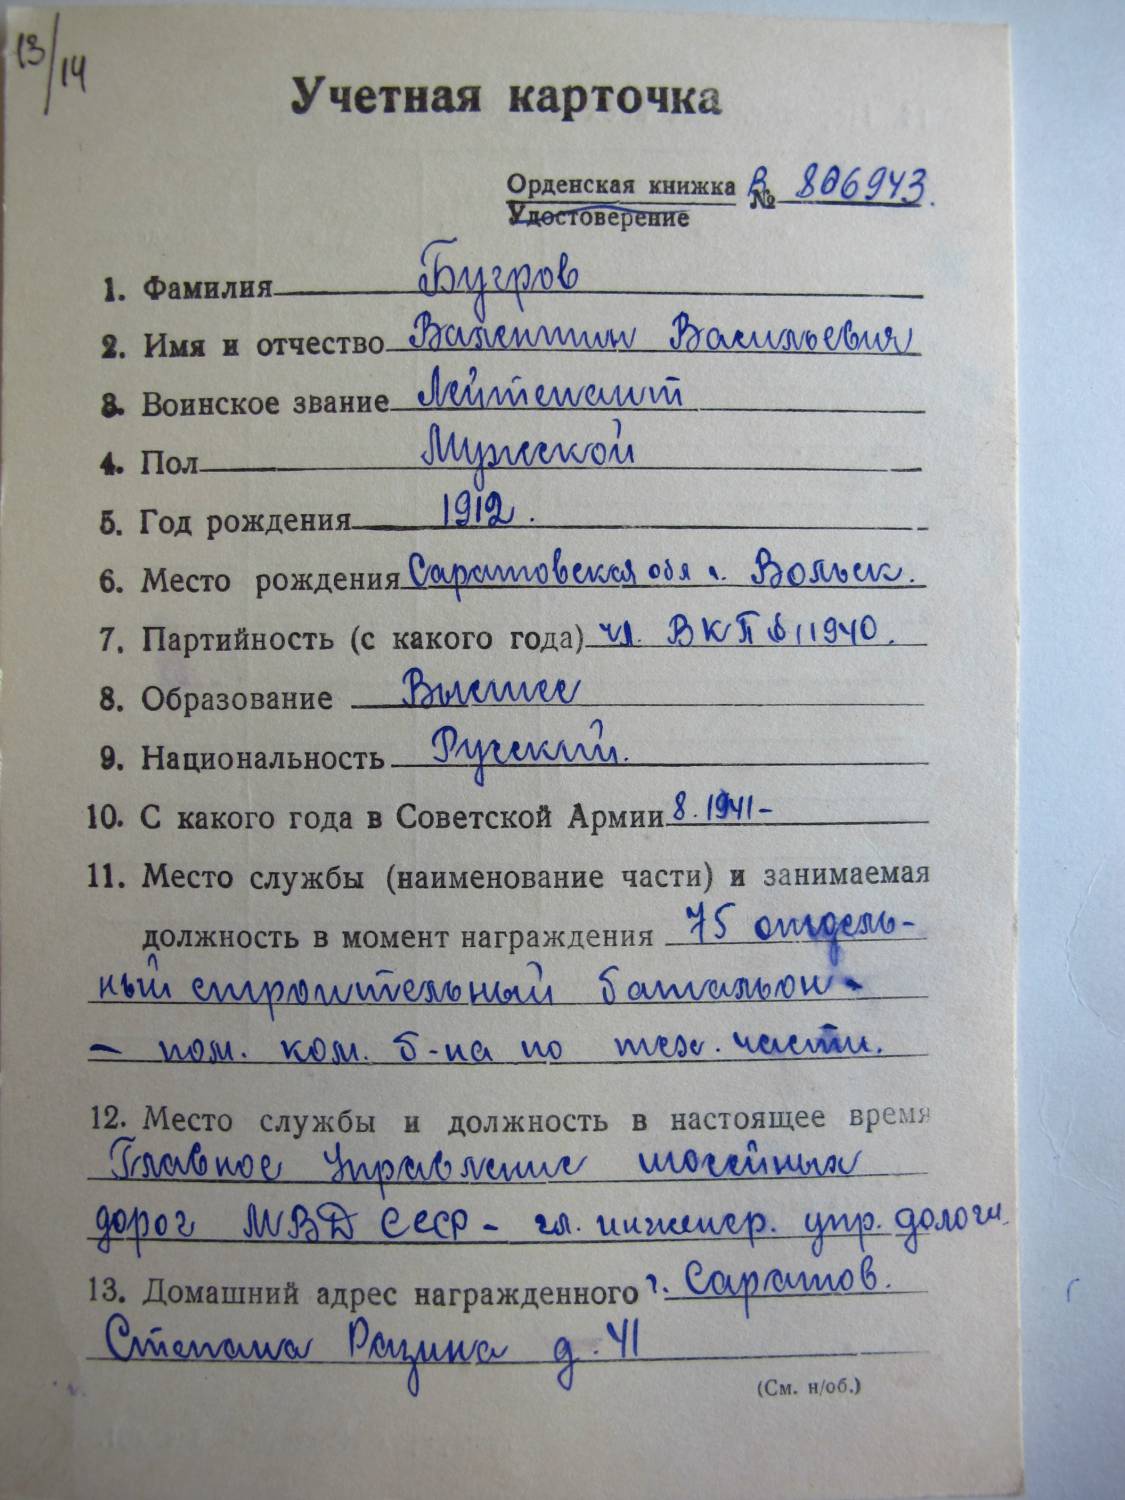 13/14
Учетная карточка
Орденская книжка В № 806943.
Удостоверение
1. Фамилия Бугров
2. Имя и отчество Валентин Васильевич
3. Воинское звание Лейтенант
4. Пол Мужской
5. Год рождения 1912.
6. Место рождения Саратовская обл г. Вольск.
7. Партийность (с какого года) чл. ВКПб, 1940.
8. Образование Высшее
9. Национальность Русский.
10. С какого года в Советской Армии 8.1941-
11. Место службы (наименование части) и занимаемая
должность в момент награждения 75 отдель-
ный строительный батальон -
- пом. ком. б-на по тех. части.
12. Место службы и должность в настоящее время
Главное Управление шоссейных
дорог МВД СССР - гл. инженер. упр.
13. Домашний адрес награжденного г. Саратов.
Степана Разина д. 41
(См. н/об.)